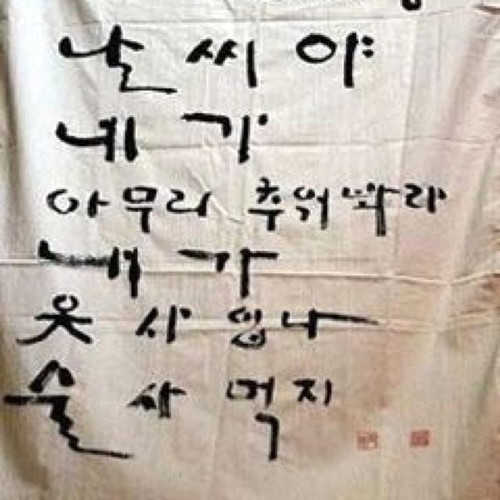 날씨야
네가
아무리 추워봐라
내가
옷 사 입나
술 사 먹지